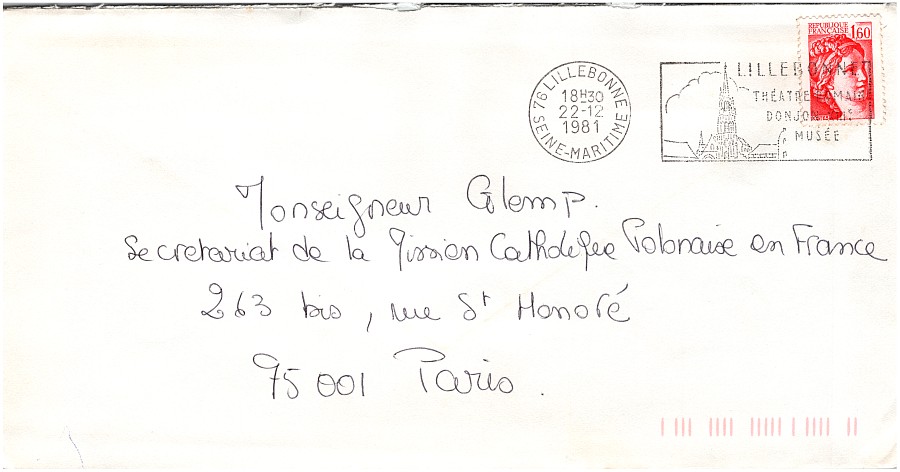 REPUBLIQUE
FRANÇAISE 1,60
76 LILLEBONNE
18H30
22-12
1981
SEINE-MARITIME
LILLEBONNE
THÉATRE ROMAIN
DONJON
MUSÉE
Monseigneur Glemp.
Secretariat de la Mission Catholique Polonaise en France
263 bis, rue St Honoré
75001 Paris.